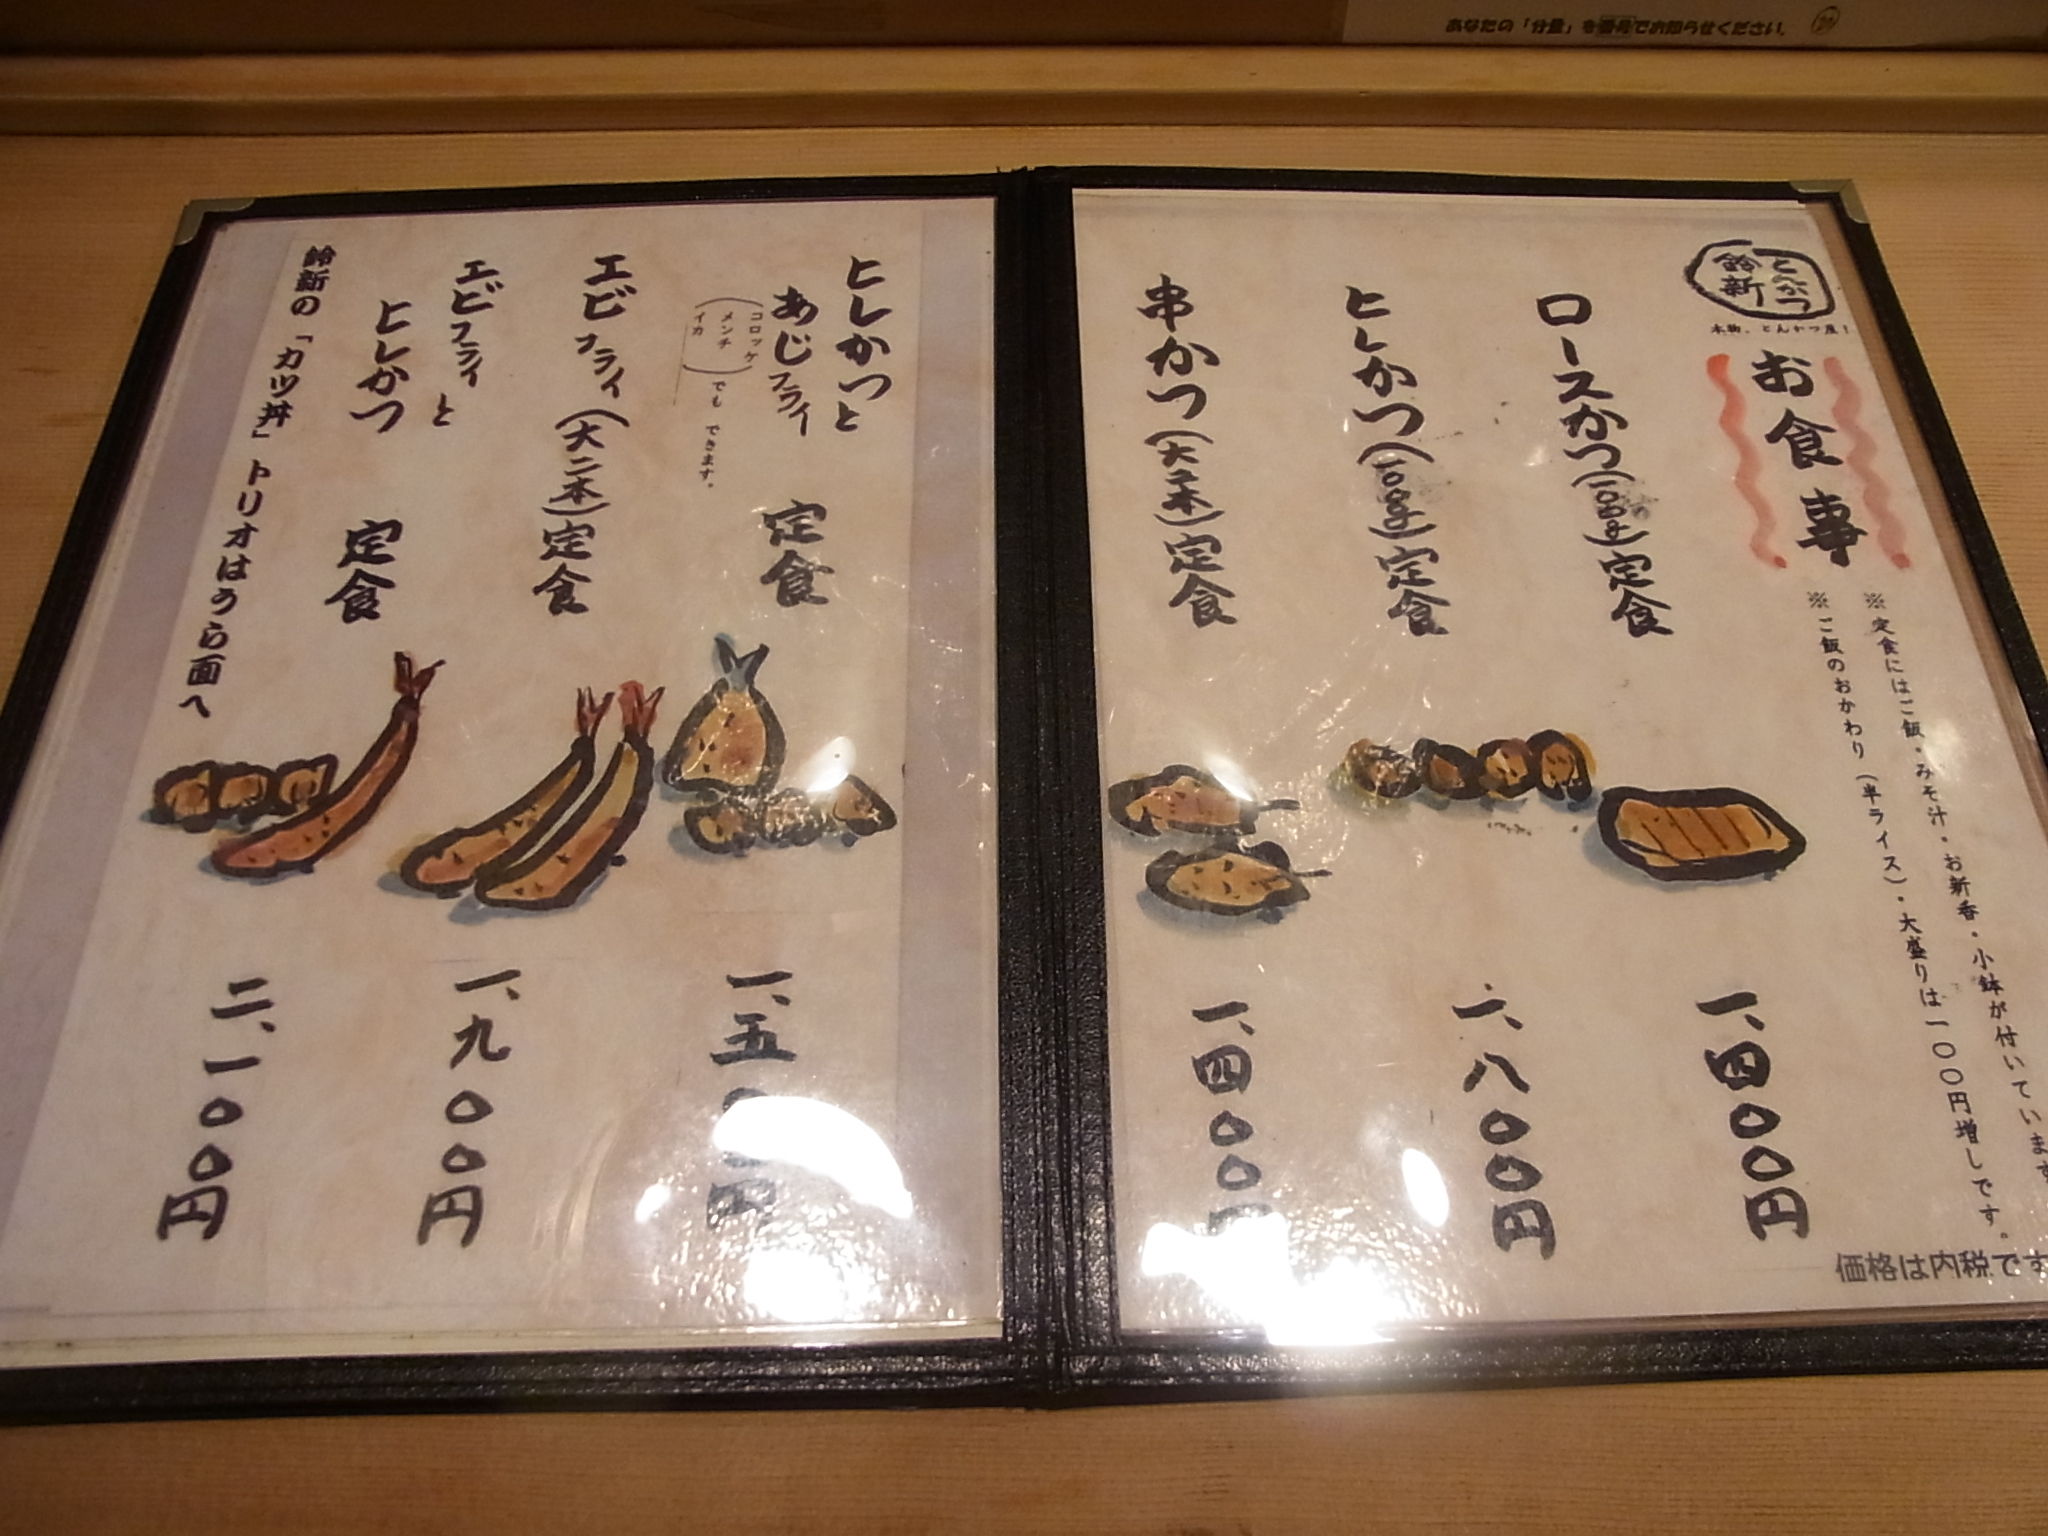 あなたの「分量」を番号でお知らせください。
とんかつ
鈴新
お食事
※定食にはご飯・みそ汁・お新香・小鉢が付いています
※ご飯のおかわり（半ライス）・大盛りは一〇〇円増しです。
ロースかつ（一〇〇g）定食
一、四〇〇円
ヒレかつ（一〇〇g）定食
一、八〇〇円
串かつ（大二本）定食
一、四〇〇円
価格は内税です
ヒレかつと
あじフライ
定食
（コロッケ
メンチ
イカ）でもできます。
一、五〇〇円
エビフライ（大二本）定食
一、九〇〇円
エビフライと
ヒレかつ
定食
二、一〇〇円
鈴新の「カツ丼」トリオはうら面へ